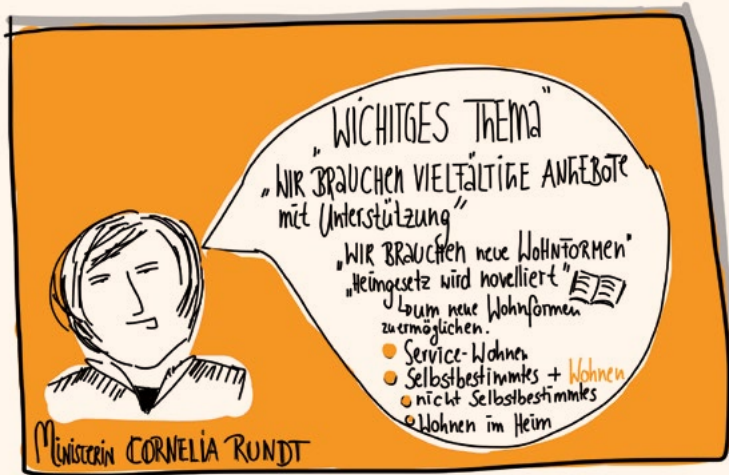 „WICHTIGES THEMA"
„WIR BRAUCHEN VIELFÄLTIGE ANGEBOTE
mit Unterstützung"
„WIR BRAUCHEN neue WOHNFORMEN"
„Heimgesetz wird novelliert"
↳ um neue Wohnformen
zu ermöglichen.
Service-Wohnen
Selbstbestimmtes + Wohnen
nicht Selbstbestimmtes
Wohnen im Heim
MINISTERIN CORNELIA RUNDT